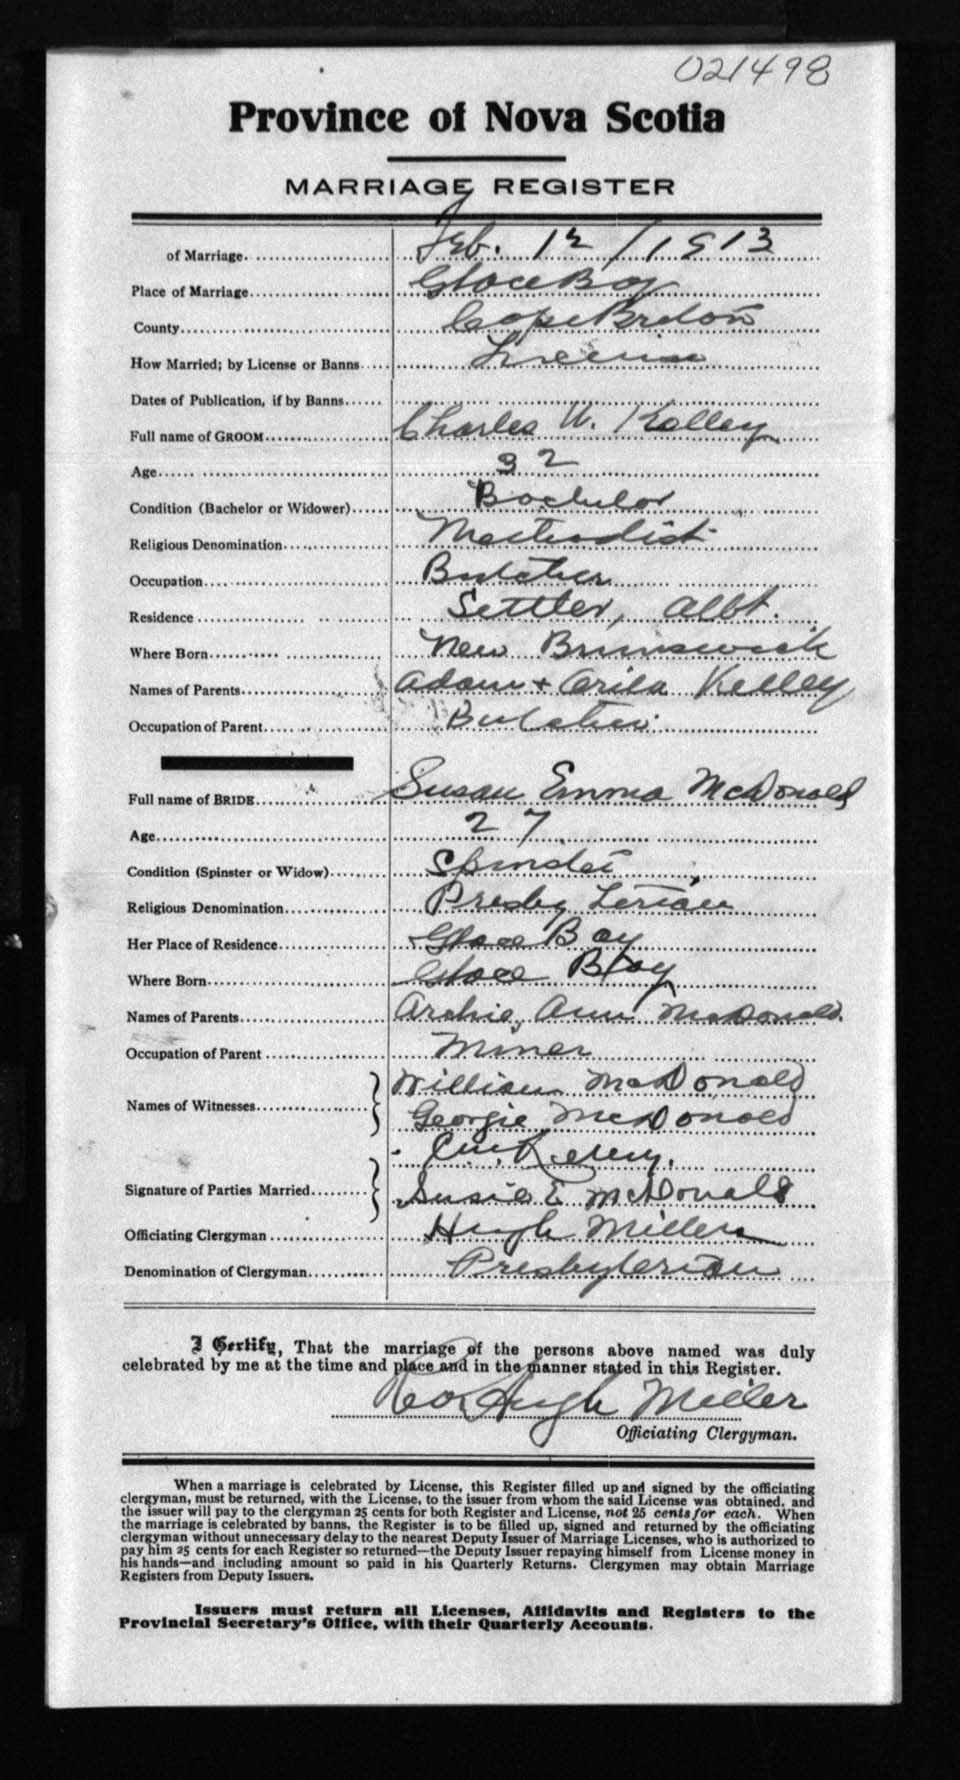 021498
Province of Nova Scotia
MARRIAGE REGISTER
of Marriage. Feb. 12 / 1913
Place of Marriage Glace Bay
County Cape Breton
How Married; by License or Banns License
Dates of Publication, if by Banns
Full name of GROOM Charles W. Kelley
Age 32
Condition (Bachelor or Widower) Bachelor
Religious Denomination Methodist
Occupation Butcher
Residence Settler, Albt.
Where Born New Brunswick
Names of Parents Adam + Kelley
Occupation of Parent Butcher
Full name of BRIDE Susan Emma McDonald
Age 27
Condition (Spinster or Widow) Spinster
Religious Denomination Presbyterian
Her Place of Residence Glace Bay
Where Born Glace Bay
Names of Parents Archie, Ann McDonald
Occupation of Parent Miner
William McDonald
Names of Witnesses
Georgie McDonald
Signature of Parties Married
Susie E McDonald
Officiating Clergyman Hugh Miller
Denomination of Clergyman Presbyterian
I Certify, That the marriage of the persons above named was duly
celebrated by me at the time and place and in the manner stated in this Register.
Hugh Miller
Officiating Clergyman.
When a marriage is celebrated by License, this Register filled up and signed by the officiating
clergyman, must be returned, with the License, to the issuer from whom the said License was obtained, and
the issuer will pay to the clergyman 25 cents for both Register and License, not 25 cents for each. When
the marriage is celebrated by banns, the Register is to be filled up, signed and returned by the officiating
clergyman without unnecessary delay to the nearest Deputy Issuer of Marriage Licenses, who is authorized to
pay him 25 cents for each Register so returned—the Deputy Issuer repaying himself from License money in
his hands—and including amount so paid in his Quarterly Returns. Clergymen may obtain Marriage
Registers from Deputy Issuers.
Issuers must return all Licenses, Affidavits and Registers to the
Provincial Secretary's Office, with their Quarterly Accounts.